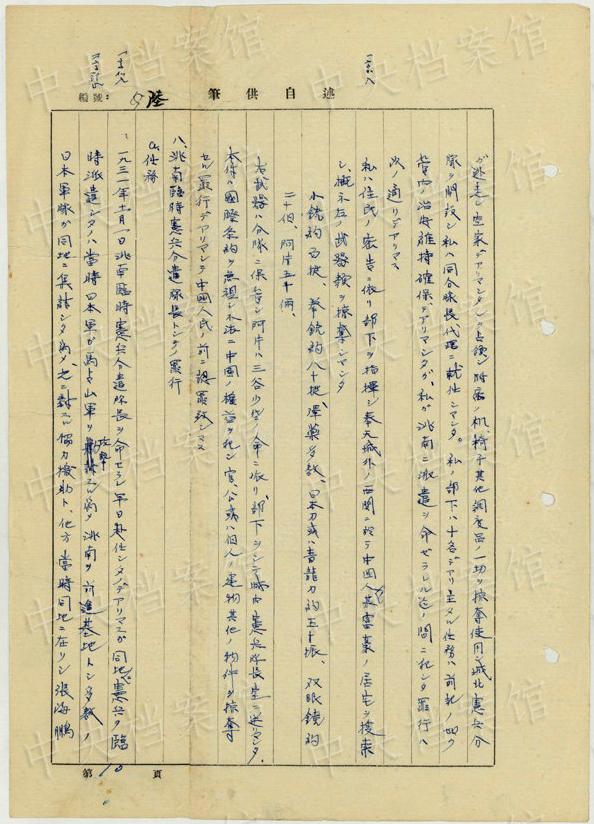 述自供筆
編號:
陸
ガ逃走シ空家デアリマシタ)ヲ占領シ附属ノ机、椅子其他調度品ノ一切ヲ掠奪使用シ城北憲兵分
隊ヲ開設シ私ハ同分隊長代理ニ就任シマシタ。私ノ部下ハ十名デアリ主タル任務ハ前記ノ如ク
管内ノ治安維持確保デアリマシタガ、私ガ洮南ニ派遣ヲ命ゼラレル迄ノ間ニ犯シタ罪行ハ
次ノ通リデアリマス
私ハ住民ノ密告ニ依リ部下ヲ指揮シ奉天城外ノ西関ニ於テ中国人富豪ノ居宅ヲ捜索
シ概ネ左ノ武器類ヲ掠奪シマシタ
小銃約百挺、拳銃約八十挺、弾薬多数、日本刀或ハ青龍刀約五十振、双眼鏡約
二十個、阿片五十個、
右武器ハ分隊ニ保管シ阿片ハ三谷少佐ノ命ニ依リ部下ヲシテ憲兵隊長室ニ送シマシタ。
本件ハ國際条約ヲ無視シ不法ニ中国ノ権益ヲ犯シ官、公或ハ個人ノ建物其他ノ物件ヲ掠奪
セル罪行デアリマシテ中國人民ノ前ニ認罪致シマス
八、洮南臨時憲兵分遣隊長トシテノ罪行
(1)任務
一九三一年十一月一日洮南臨時憲兵分遣隊長ヲ命ゼラレ同日赴任シタノデアリマスガ同地ニ憲兵ヲ臨
時派遣シタノハ当時日本軍ガ馬占山軍ヲ攻撃スル為メ洮南ヲ前進基地トシ多数ノ
日本軍隊ガ同地ニ集結シタ為メ之ニ対スル協力援助ト、他方當時同地ニ在リシ張海鵬
第 10 頁
中央档案馆